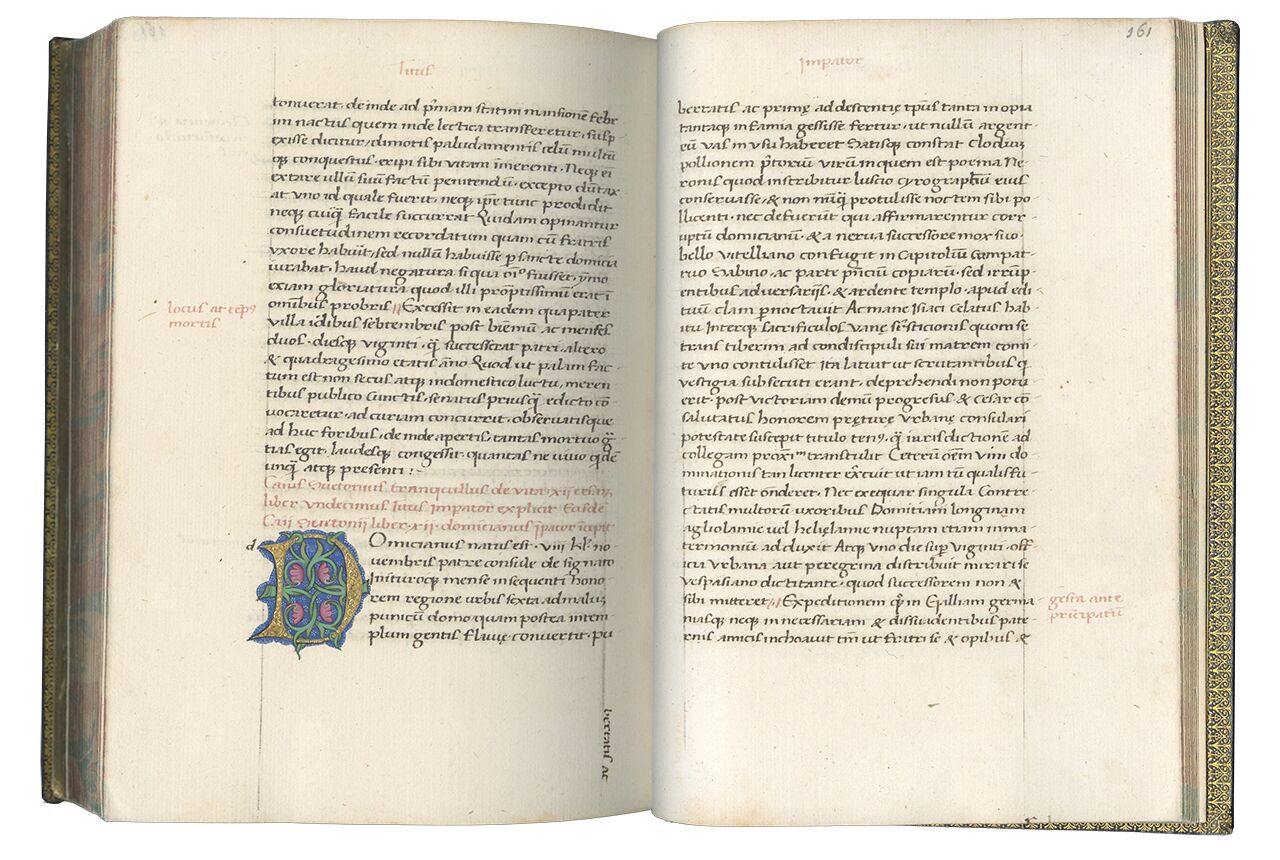 Titus
tonuerat. de inde ad p̃mam statim mansionẽ febr
im nactus quem inde lectica transferetur, susp
exisse dicitur, dimotis paludamentis celũ multũ
qꝫ conquestus. eripi sibi vitam ĩmerenti. Neqꝫ ei
extare ullũ suũ factũ penitendũ. excepto dũtax
at vno id quale fuerit, neqꝫ ip̃e tunc prodidit
neqꝫ cuiq̃ facile succurrat Quidam opinantur
consuetudinem recordatum quam cũ fratris
vxore habuit, sed nullũ habuisse p sancte domicia
iurabat. haud negatura si qua om̃o fuisset, ymo
exiam gloriatura quod illi prõptissimũ erat ĩ
omĩbus probris Excessit in eadem qua pater
villa idibus sebtembris post biemũ ac menses
duos. diesqꝫ viginti. q̃ successerat patri. altero
& quadragesimo etatis ãno Quod ut palam fac
tum est non secus atqꝫ in domestico luctu, meren
tibus publico cunctis, senatus priusq̃ edicto cõ
uocaretur. ad curiam concurrit. obseruatisque
ad huc foribus, de inde apertis. tantas mortuo g̃
tias egit, laudesqꝫ congessit quantas ne viuo q̃dẽ
unq̃ atqꝫ presenti :~
locus at tẽpꝰ
mortis
Caius Suetonius tranquillus de vita. xii cesarꝫ,
liber vndecimus Titus Imp̃ator explicit Eiusdẽ
Caii Suetonii liber. xii. domicianus ĩpator ĩcepit
d
DOmicianus natus est. viii kl̃. no
uembris patre consule de signato
Inituroqꝫ mense insequenti hono
rem regione urbis sexta ad malũ
punicũ domo quam postea in tem
plum gentis flauię conuertit. pu
bertatis ac
Imp̃ator
161
bertatis ac primę ad descentię tp̃us tanta in opia
tantaqꝫ in famia gessisse fertur. ut nullũ argent
eũ vas in vsu haberet Satisqꝫ constat Clodiũ
pollionem p̃toriũ virũ in quem est poema Ne
ronis quod inscribitur luscio cyrographũ eius
conseruasse, & non nũq̃ protulisse noctem sibi po
llicenti. nec defuerũt qui affirmarent cor
uptũ domicianũ. & a nerua successore mox suo
bello vitelliano confugit in Capitoliũ Cum pat
ruo Sabino, ac parte p̃nciũ copiarũ. sed irrũp
entibus aduersarijs. & ardente templo. apud edi
tuũ clam p noctauit Ac mane Isiaci celatus hab
itu Interqꝫ sacrificulos vanę sup̃sticionis quom se
trans tiberim ad condiscipuli sui matrem comi
te vno contulisset ita latuit ut scrutantibus q
vestigia subsecuti erant. deprehendi non potu
erit. post victoriam demũ progresus & Cesar cõ
salutatus honorem pręturę vrbanę consulari
potestate suscepit titulo tenꝰ. q̃ iuris dictionẽ ad
collegam proxiᵐ transtulit Ceterũ om̃ vim do
minationis tan licenter ex̃cuit ut iam tũ qualis fu
turus esset õnderet. Nec exequar singula Contre
ctatis multorũ uxoribus Domitiam longinam
aglio lamię vel helię lamię nuptam etiam in ma
termoniũ ad duxit Atqꝫ vno die sup viginti. off
icia vrbana aut peregrina distribuit mirari se
vespasiano dictitante. quod successorem non &
sibi mitteret. Expeditionem q̃ in Galliam germa
niasqꝫ neqꝫ in necessariam & dissuadentibus pate
rnis amicis inchoauit tm̃ ut fratri se & opibus &
gesta ante
prĩcipatũ